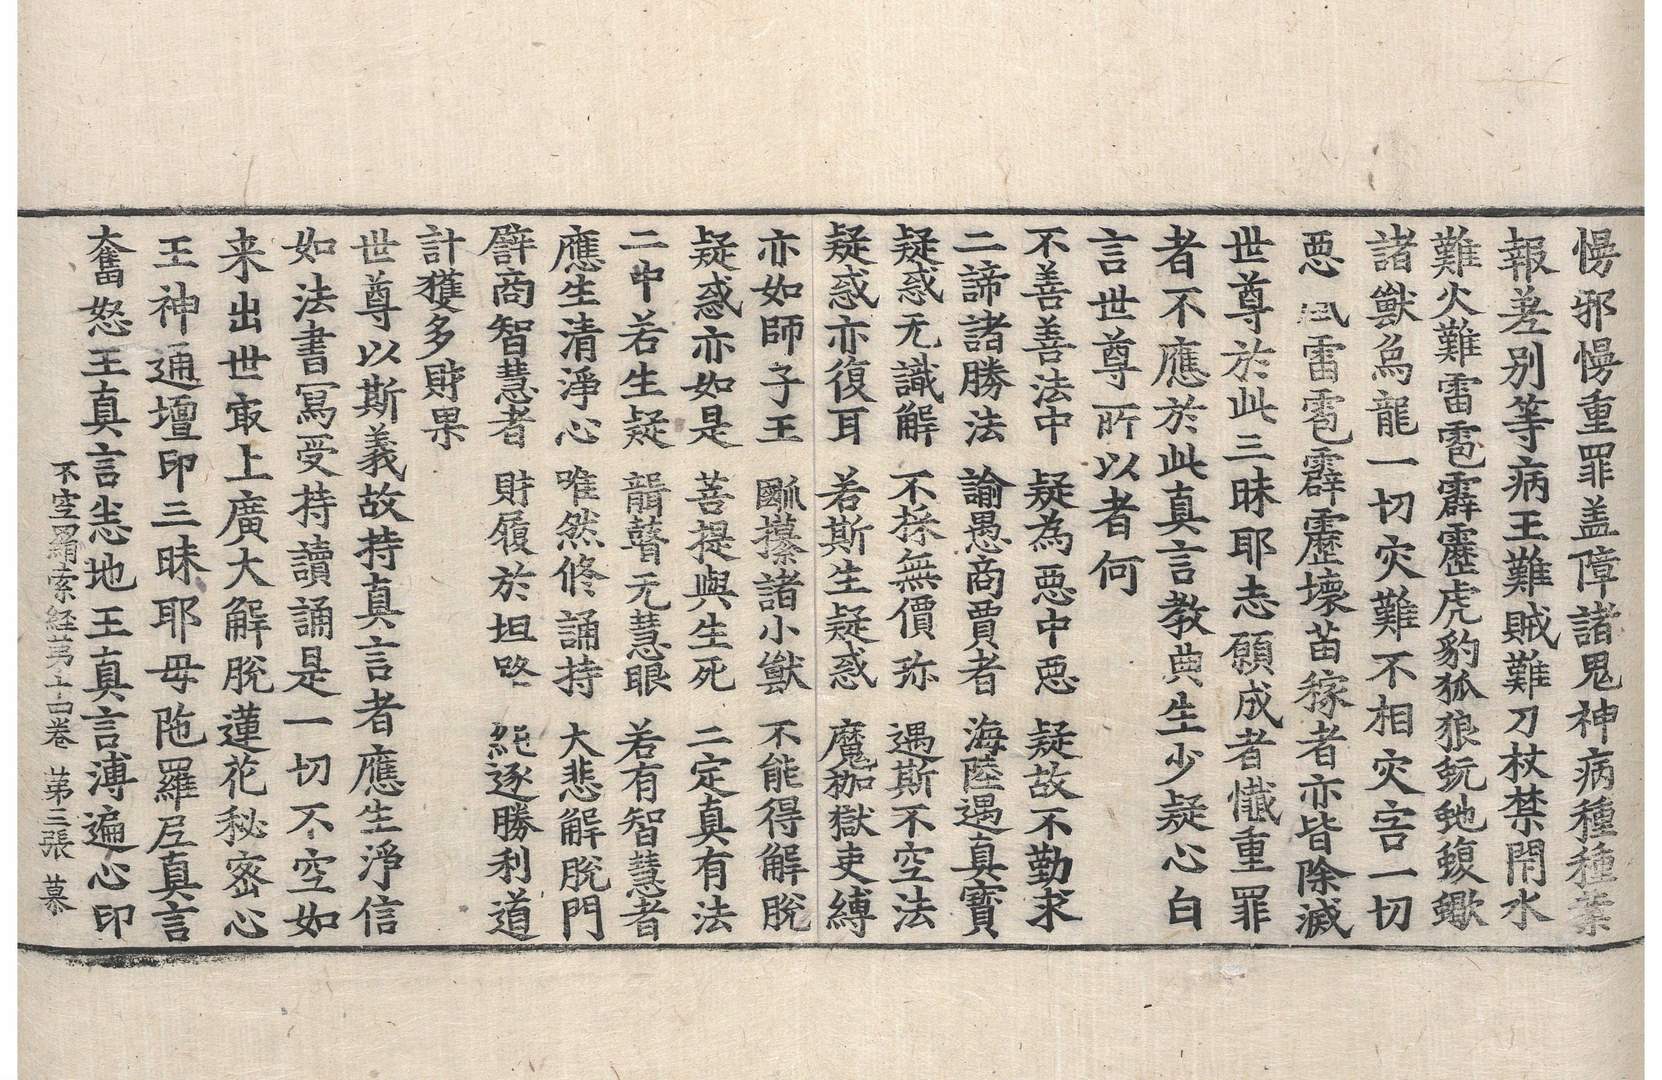 慢邪慢重罪盖障諸鬼神病種種業
報差别等病王難賊難刀杖禁閇水
難火難雷雹霹靂虎豹狐狼蚖虵蝮蠍
諸獸鳥龍一切灾難不相灾害一切
惡風雷雹霹靂壞苗稼者亦皆除滅
世尊於此三昧耶志願成者懺重罪
者不應於此真言教典生少疑心白
言世尊所以者何
不善善法中 疑為惡中惡 疑故不勤求
二諦諸勝法 諭愚商賈者 海陸遇真寶
疑惑无識解 不採無價珎 遇斯不空法
疑惑亦復耳 若斯生疑惑 魔枷獄吏縛
亦如師子王 㽽攥諸小獸 不能得解脫
疑惑亦如是 菩提與生死 二定真有法
二中若生疑 聾瞽无慧眼 若有智慧者
應生清淨心 唯然修誦持 大悲解脫門
譬商智慧者 財履於坦路 䋲逐勝利道
計獲多財果
世尊以斯義故持真言者應生淨信
如法書寫受持讀誦是一切不空如
来出世㝡上廣大解脫蓮花秘密心
王神通壇印三昧耶母陁羅尼真言
奮怒王真言怸地王真言溥遍心印
不空羂索経苐十四卷 苐三張 慕